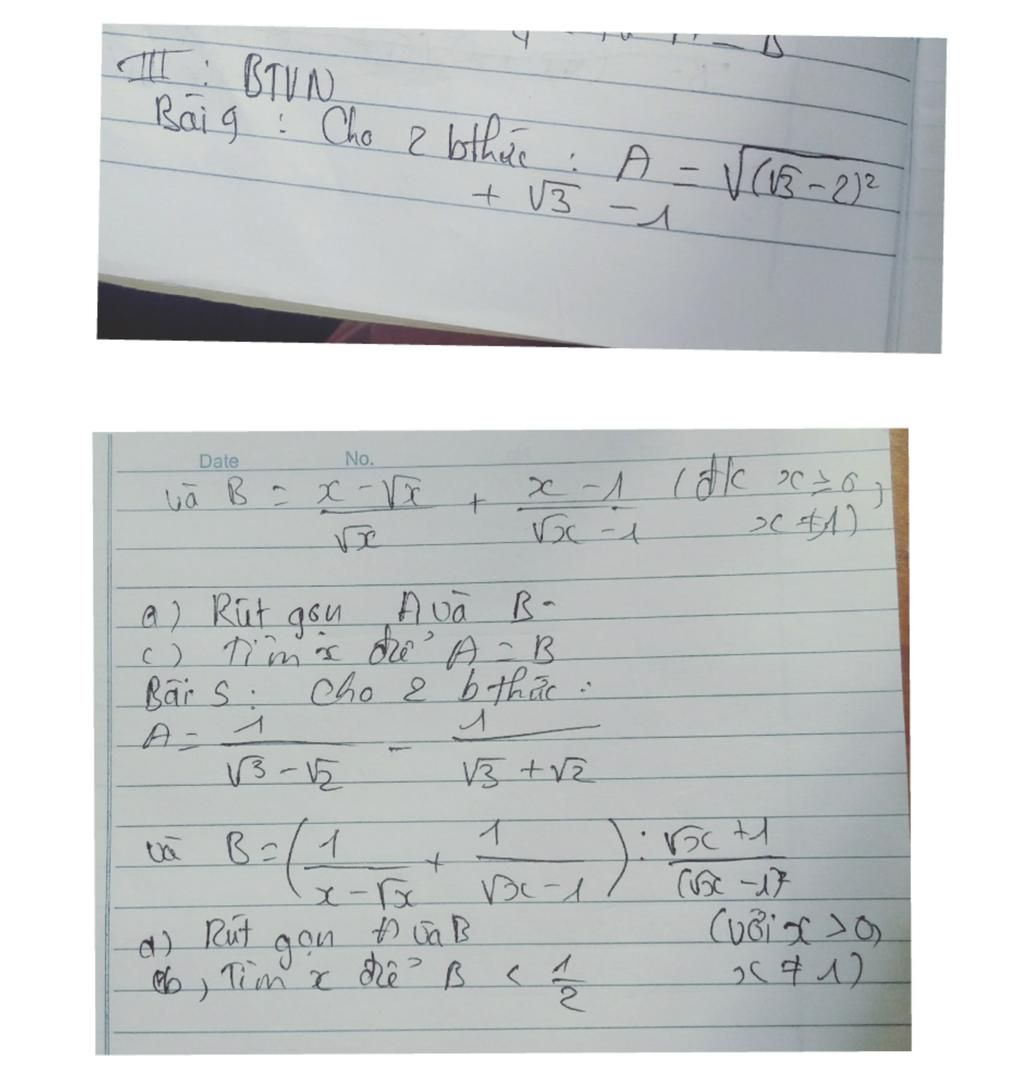 III : BTVN
Bài 9 : Cho 2 bthức : A = √(√3 - 2)²
+ √3 - 1
Date No.
và B = (x - √x)/√x + (x - 1)/(√x - 1) (đk x ≥ 0,
x ≠ 1)
a) Rút gọn A và B.
c) Tìm x để A = B
Bài 5 : Cho 2 bthức :
A = 1/(√3 - √2) - 1/(√3 + √2)
và B = (1/(x - √x) + 1/(√x - 1)) : (√x + 1)/(√x - 1)²
a) Rút gọn A và B (với x > 0,
b, Tìm x để B < 1/2 x ≠ 1)